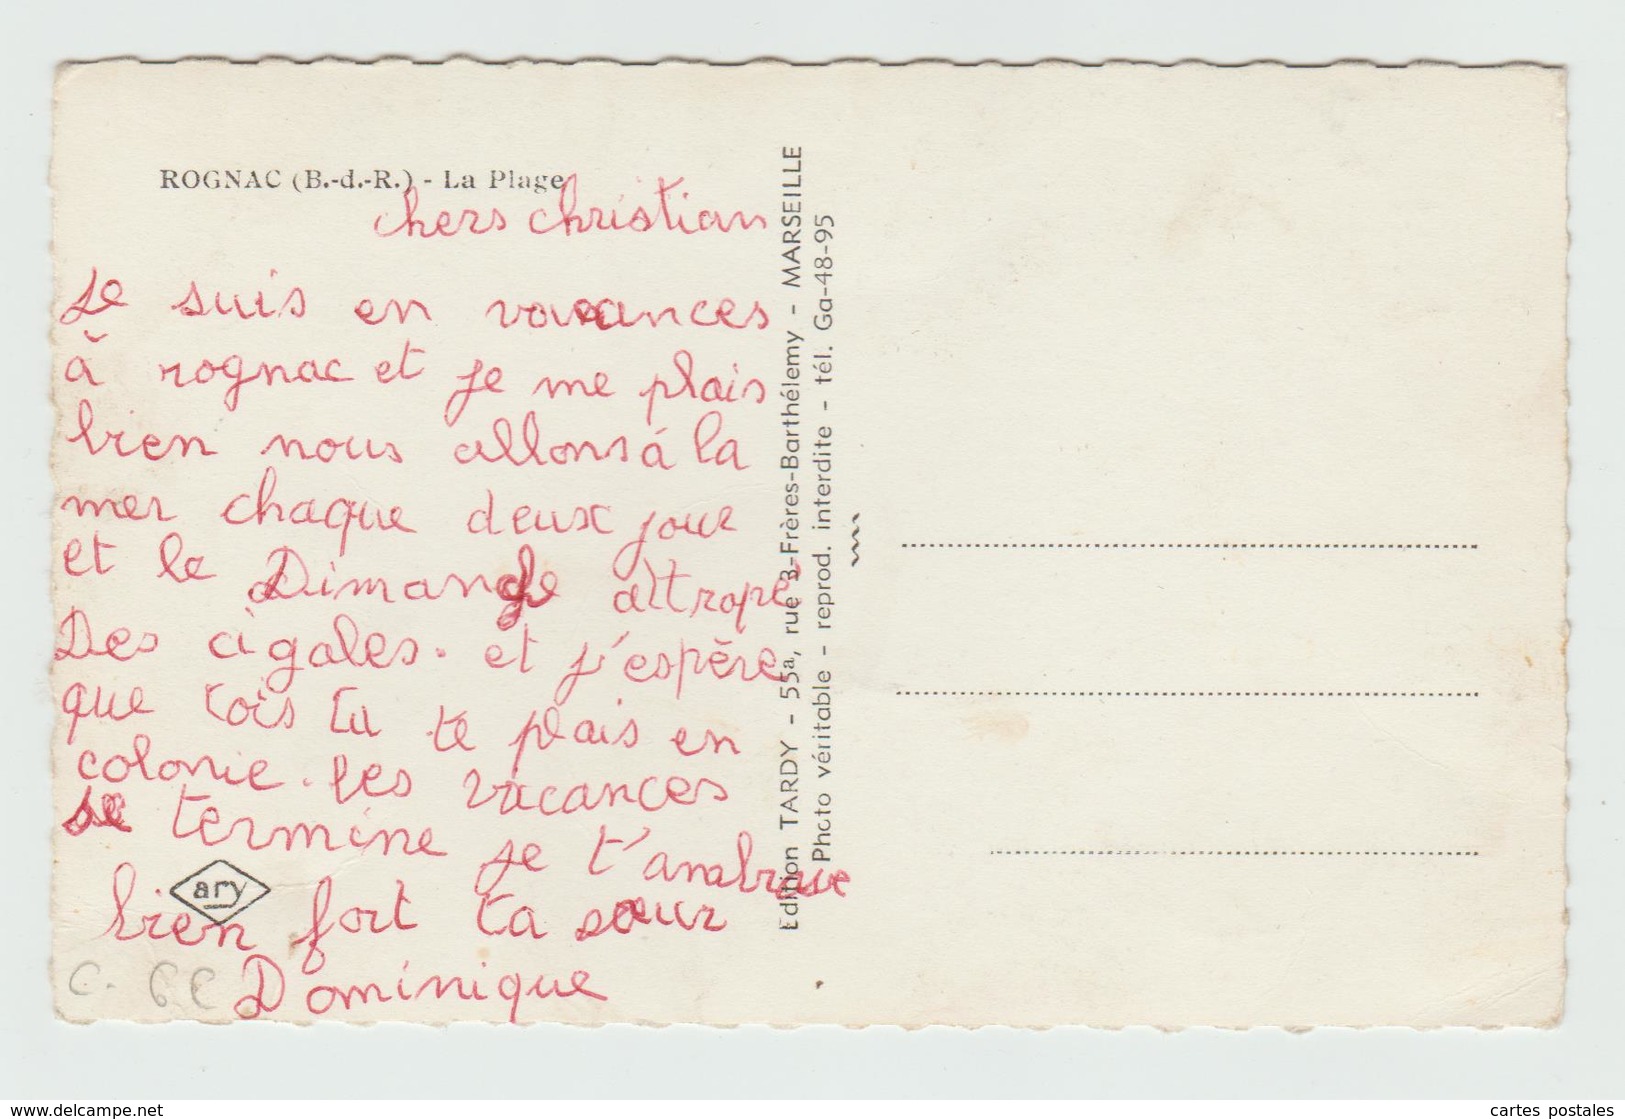 ROGNAC (B.-d.-R.) - La Plage
chers christian
Je suis en vacances
à rognac et je me plais
bien nous allons á la
mer chaque deux jour
et le Dimanche attrope
Des cigales. et j'espère
que tois tu te plais en
colonie. les vacances
se termine je t'ambrasse
bien fort ta sœur
Dominique
ary
C. 6E
Edition TARDY - 55a, rue 3-Frères-Barthélemy - MARSEILLE
Photo véritable - reprod. interdite - tél. Ga-48-95
www.delcampe.net
cartes postales